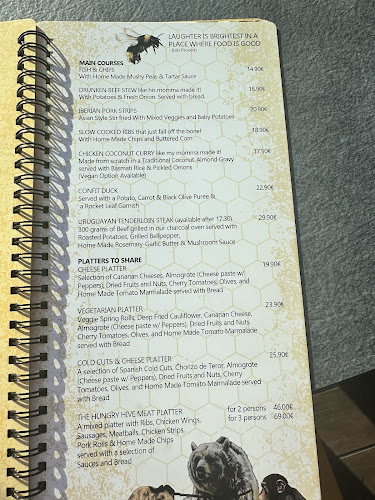 LAUGHTER IS BRIGHTEST IN A
PLACE WHERE FOOD IS GOOD
- Irish Proverb
MAIN COURSES
FISH & CHIPS 14.90€
With Home Made Mushy Peas & Tartar Sauce
DRUNKEN BEEF STEW like his momma made it! 15.90€
With Potatoes & Fresh Onion. Served with bread
IBERIAN PORK STRIPS 20.90€
Asian Style Stir fried With Mixed Veggies and Baby Potatoes
SLOW COOKED RIBS that just fall off the bone! 18.90€
With Home Made Chips and Buttered Corn
CHICKEN COCONUT CURRY like my momma made it! 17.90€
Made from scratch in a Traditional Coconut-Almond Gravy
served with Basmati Rice & Pickled Onions
(Vegan Option Available)
CONFIT DUCK 22.90€
Served with a Potato, Carrot & Black Olive Puree &
a Rocket Leaf Garnish
URUGUAYAN TENDERLOIN STEAK (available after 17:30) 29.90€
300 grams of Beef grilled in our charcoal oven served with
Roasted Potatoes, Grilled Bellpepper,
Home Made Rosemary-Garlic Butter & Mushroom Sauce
PLATTERS TO SHARE
CHEESE PLATTER 19.90€
Selection of Canarian Cheeses, Almogrote (Cheese paste w/
Peppers), Dried Fruits and Nuts, Cherry Tomatoes, Olives, and
Home Made Tomato Marmalade served with Bread
VEGETARIAN PLATTER 23.90€
Veggie Spring Rolls, Deep Fried Cauliflower, Canarian Cheese,
Almogrote (Cheese paste w/ Peppers), Dried Fruits and Nuts,
Cherry Tomatoes, Olives, and Home Made Tomato Marmalade
served with Bread
COLD CUTS & CHEESE PLATTER 25.90€
A selection of Spanish Cold Cuts, Chorizo de Teror, Almogrote
(Cheese paste w/ Peppers), Dried Fruits and Nuts, Cherry
Tomatoes, Olives, and Home Made Tomato Marmalade served
with Bread
THE HUNGRY HIVE MEAT PLATTER for 2 persons 46.00€
A mixed platter with Ribs, Chicken Wings, for 3 persons 69.00€
Sausages, Meatballs, Chicken Strips,
Pork Rolls & Home Made Chips
served with a selection of
Sauces and Bread